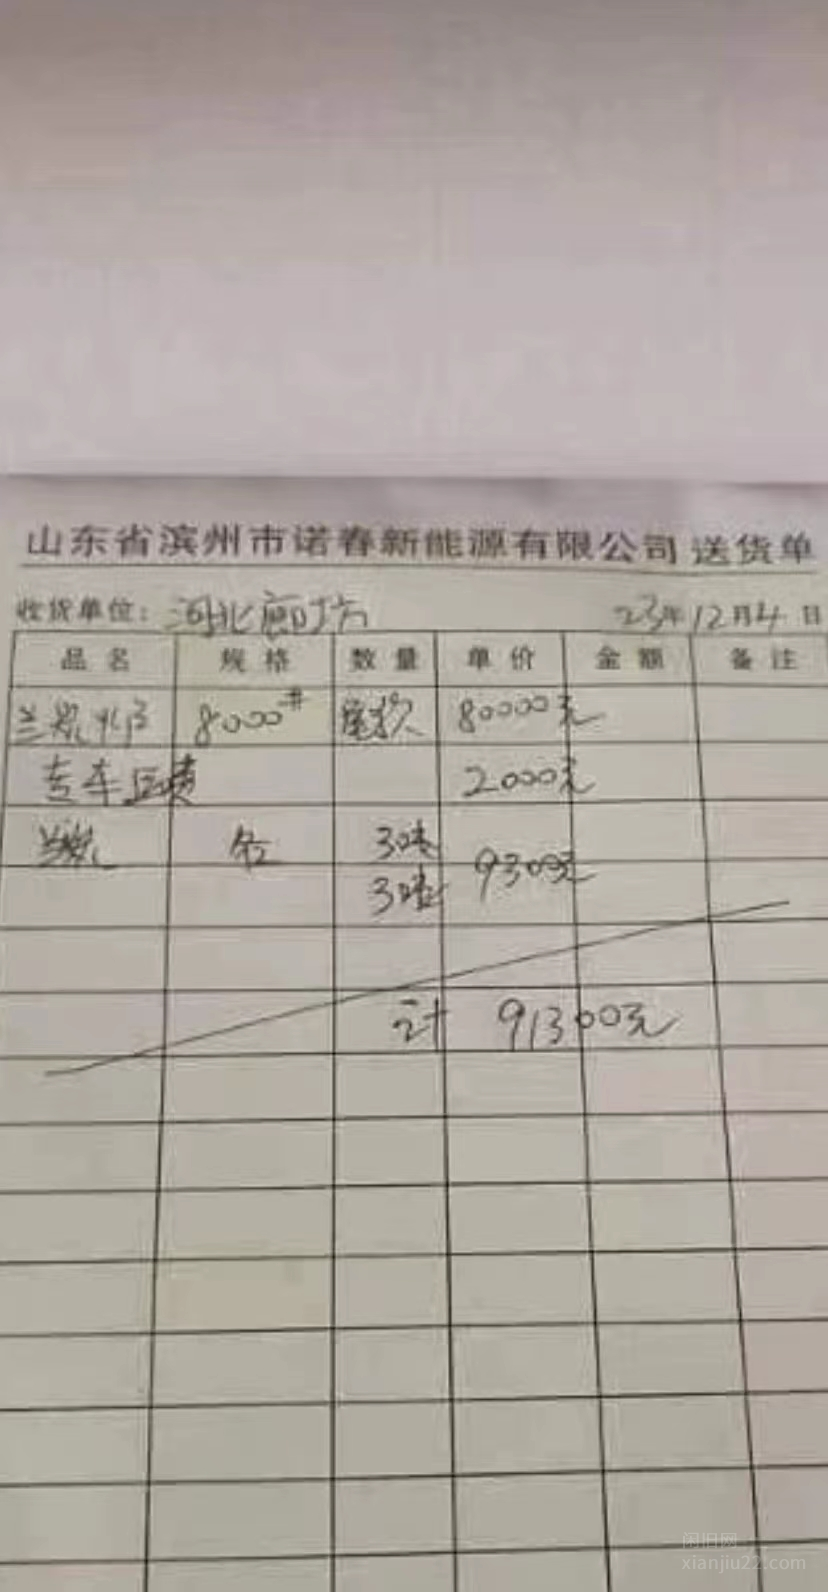 山东省滨州市诺春新能源有限公司 送货单
收货单位: 河北廊坊 23年12月4日
品名 规格 数量 单价 金额 备注
兰炭 8000# 尾款 80000元
专车运费 2000元
兰炭 3吨 9300元
3吨
计 91300元
闲旧网
xianjiu22.com